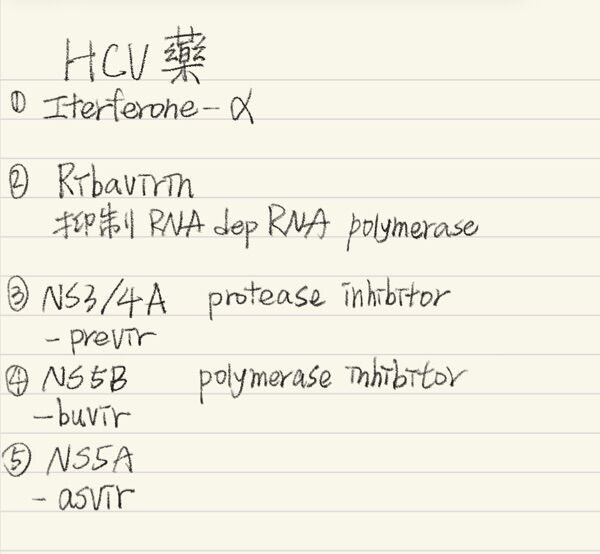 HCV 藥
① Iterferone-α
② Ribavirin
抑制 RNA dep RNA polymerase
③ NS3/4A protease inhibitor
- previr
④ NS5B polymerase inhibitor
-buvir
⑤ NS5A
- asvir